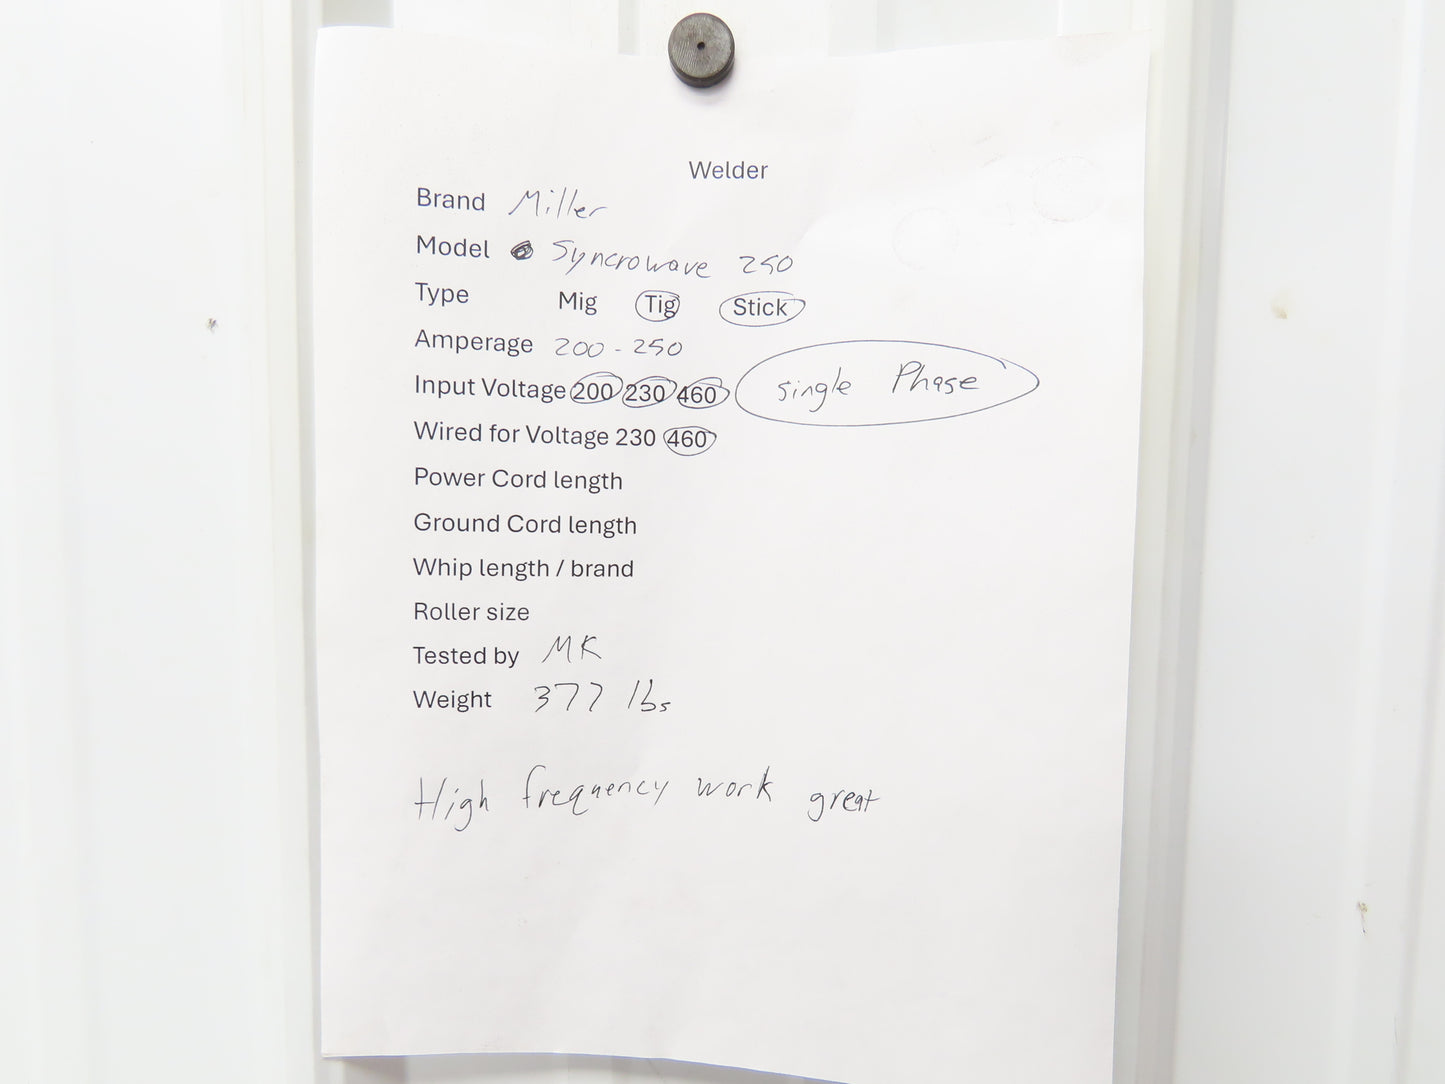 Welder
Brand Miller
Model Syncrowave 250
Type Mig Tig Stick
Amperage 200 - 250
Input Voltage 200 230 460 single Phase
Wired for Voltage 230 460
Power Cord length
Ground Cord length
Whip length / brand
Roller size
Tested by MK
Weight 377 lbs
High frequency work great